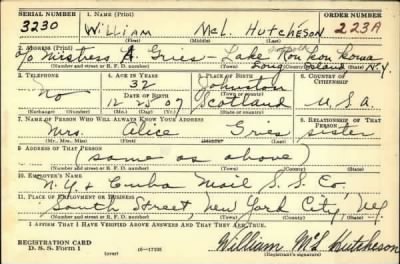 SERIAL NUMBER 1. NAME (Print) ORDER NUMBER
3230 WILLIAM McL. HUTCHESON 223A
(First) (Middle) (Last)
2. ADDRESS (Print)
c/o Mistress A. Gries - Lake Ronkonkoma
Suffolk
Long Island N.Y.
(Number and street or R. F. D. number) (Town) (County) (State)
3. TELEPHONE 4. AGE IN YEARS 5. PLACE OF BIRTH 6. COUNTRY OF CITIZENSHIP
32 Johnston
No DATE OF BIRTH (Town or county)
12 25 07 Scotland U.S.A.
(Exchange) (Number) (Mo.) (Day) (Yr.) (State or country)
7. NAME OF PERSON WHO WILL ALWAYS KNOW YOUR ADDRESS 8. RELATIONSHIP OF THAT PERSON
Mrs. Alice Gries sister
(Mr., Mrs., Miss) (First) (Middle) (Last)
9. ADDRESS OF THAT PERSON
(same as above)
(Number and street or R. F. D. number) (Town) (County) (State)
10. EMPLOYER'S NAME
N.Y. & Cuba Mail S.S. Co.
11. PLACE OF EMPLOYMENT OR BUSINESS
South Street, New York City, N.Y.
(Number and street or R. F. D. number) (Town) (County) (State)
I AFFIRM THAT I HAVE VERIFIED ABOVE ANSWERS AND THAT THEY ARE TRUE.
REGISTRATION CARD
D. S. S. Form 1 (over) 16-17105 William McL Hutcheson
(Registrant's signature)